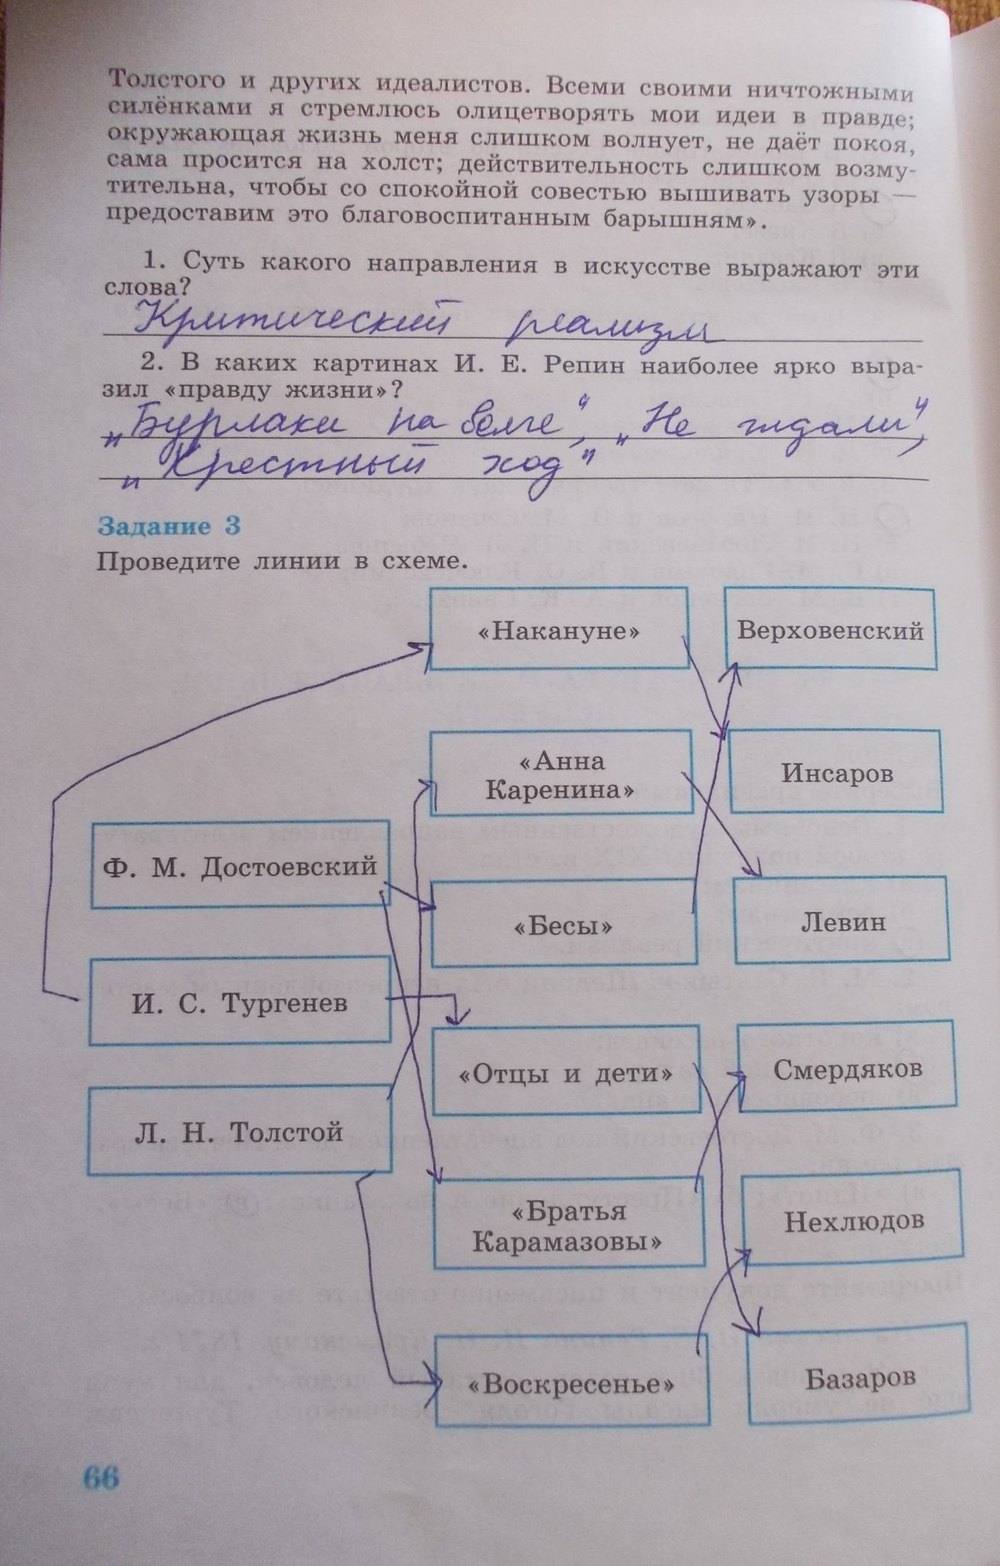 Толстого и других идеалистов. Всеми своими ничтожными
силёнками я стремлюсь олицетворять мои идеи в правде;
окружающая жизнь меня слишком волнует, не даёт покоя,
сама просится на холст; действительность слишком возму-
тительна, чтобы со спокойной совестью вышивать узоры —
предоставим это благовоспитанным барышням».
1. Суть какого направления в искусстве выражают эти
слова?
Критический реализм
2. В каких картинах И. Е. Репин наиболее ярко выра-
зил «правду жизни»?
„Бурлаки на волге", „Не ждали",
„Крестный ход"
Задание 3
Проведите линии в схеме.
«Накануне»
Верховенский
«Анна
Каренина»
Инсаров
Ф. М. Достоевский
«Бесы»
Левин
И. С. Тургенев
«Отцы и дети»
Смердяков
Л. Н. Толстой
«Братья
Карамазовы»
Нехлюдов
«Воскресенье»
Базаров
66